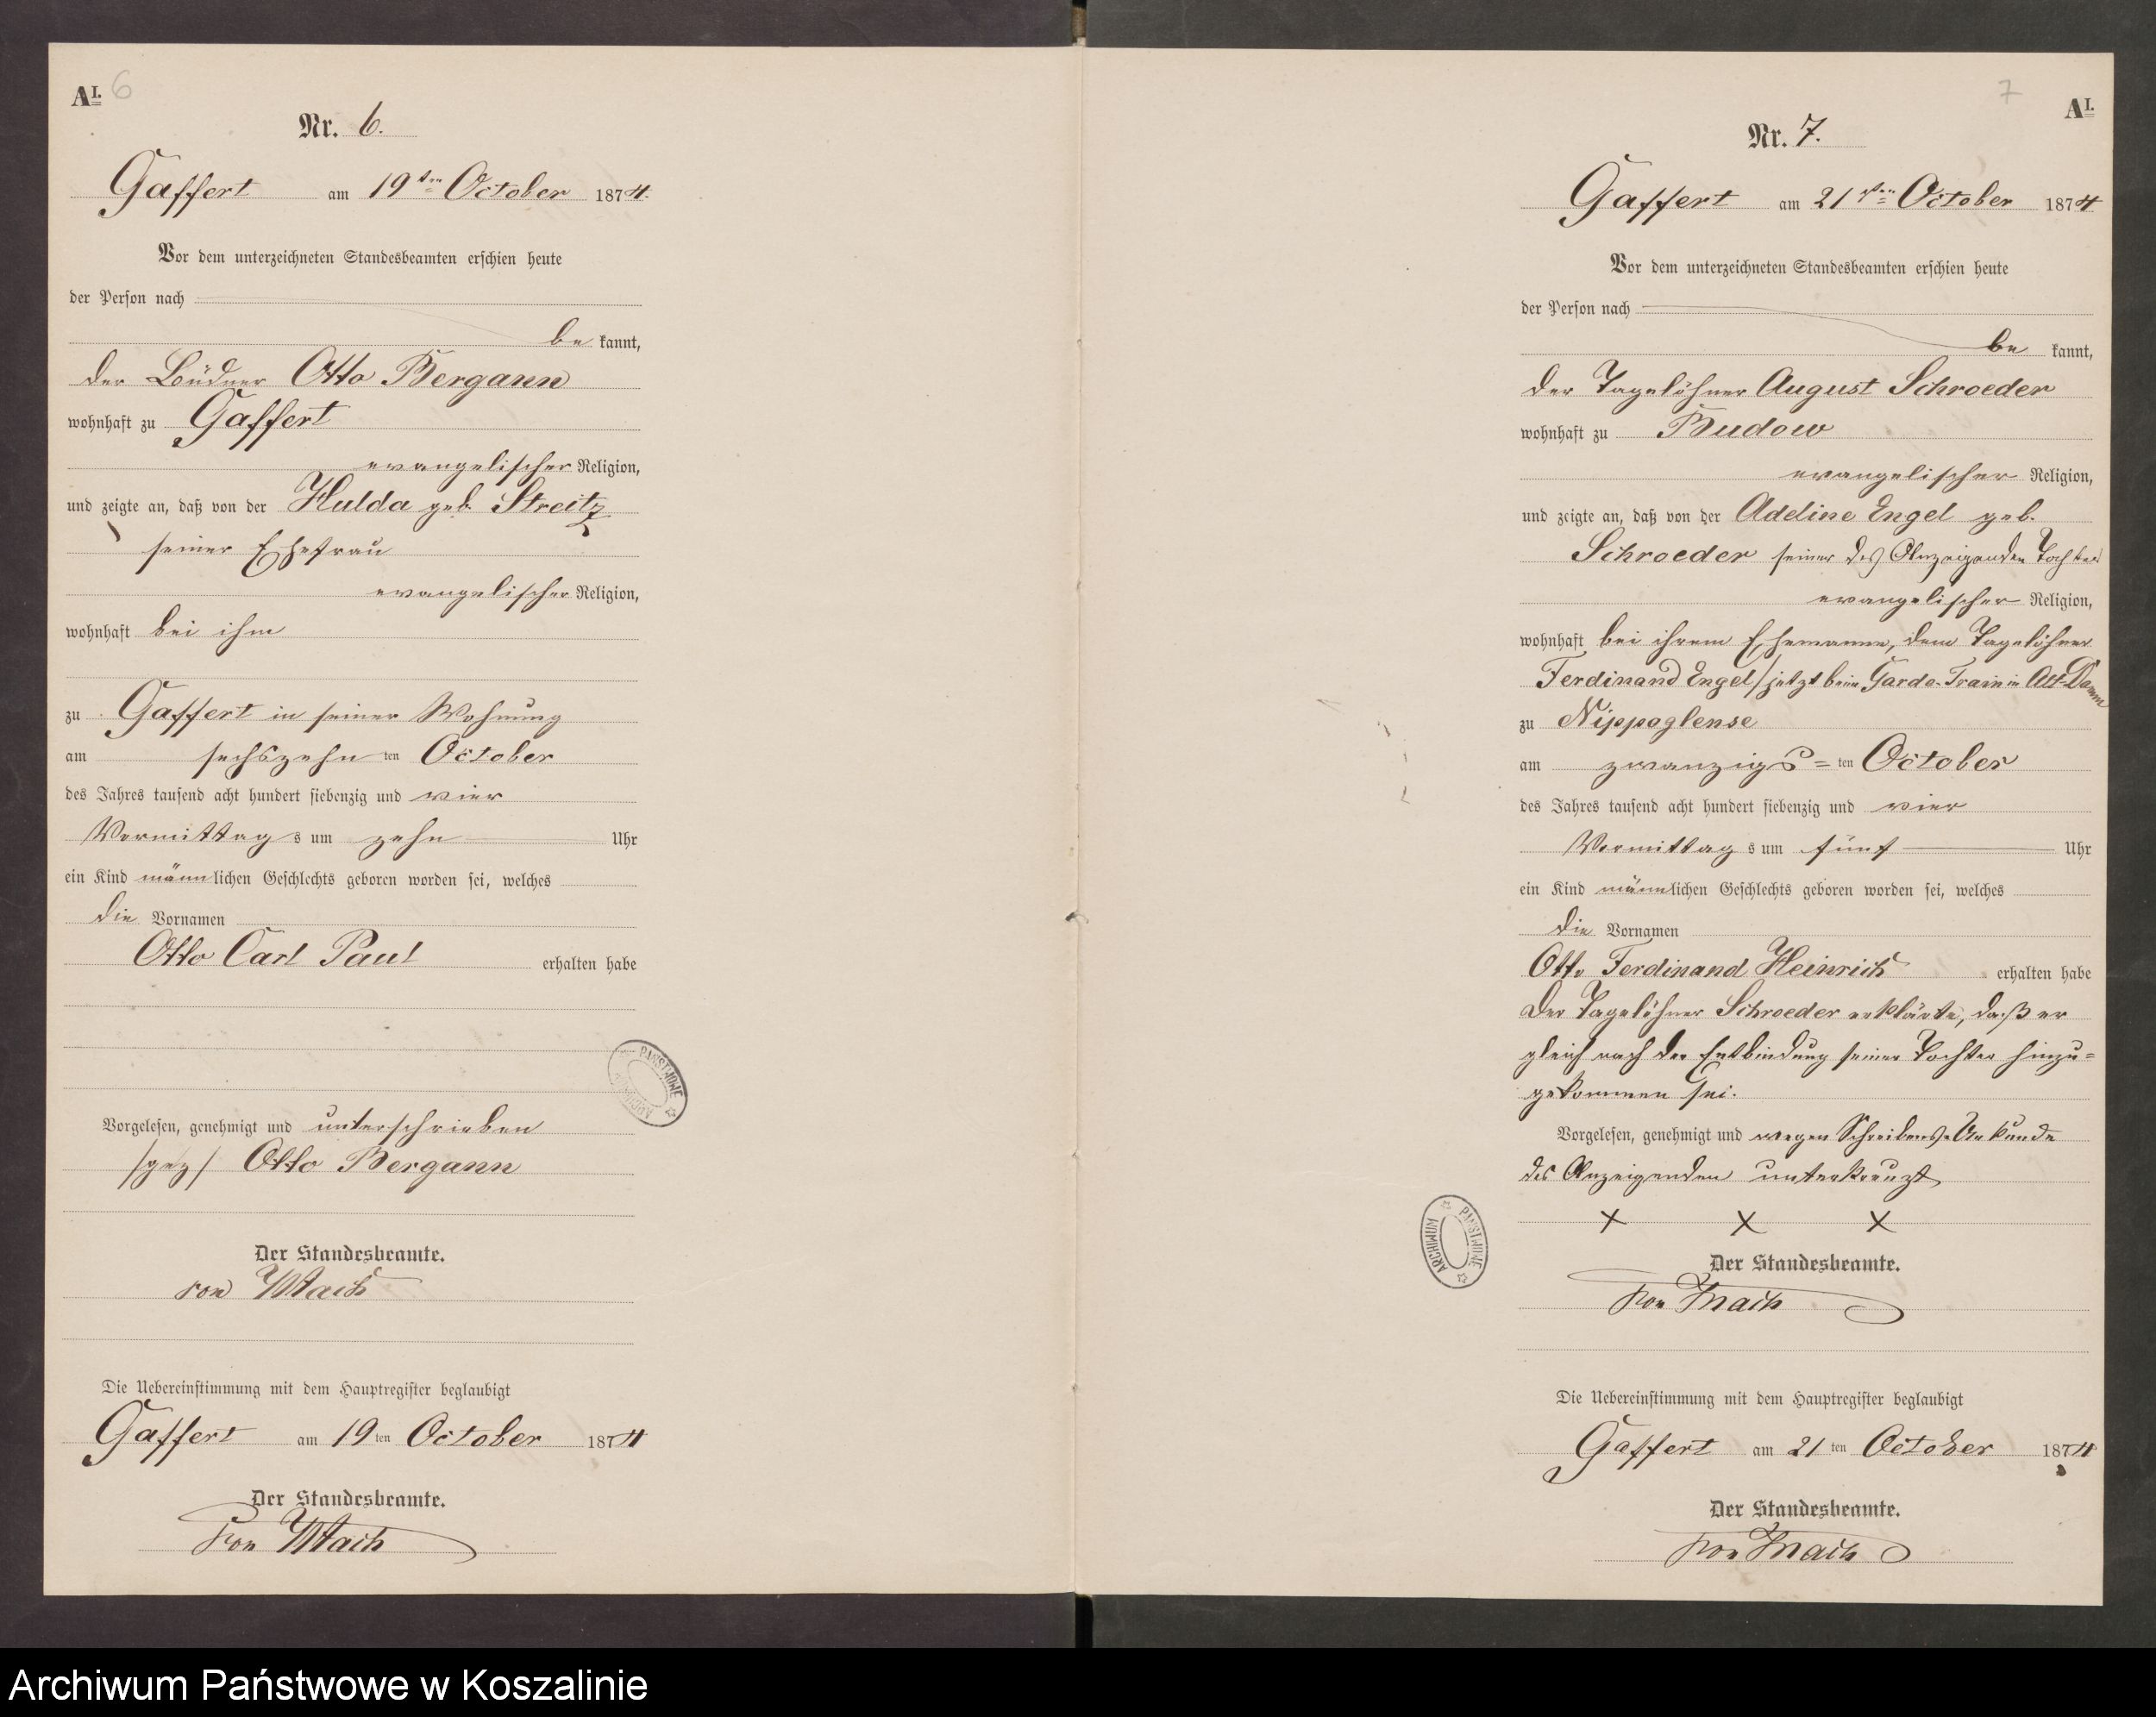 AI. 6
Nr. 6.
Gaffert am 19ten October 1874.
Vor dem unterzeichneten Standesbeamten erschien heute
der Person nach
be kannt,
der Büdner Otto Bergann
wohnhaft zu Gaffert
evangelischer Religion,
und zeigte an, daß von der Hulda geb. Streitz
seiner Ehefrau
evangelischer Religion,
wohnhaft bei ihm
zu Gaffert in seiner Wohnung
am sechszehn ten October
des Jahres tausend acht hundert siebenzig und vier
Vormittag s um zehn Uhr
ein Kind männlichen Geschlechts geboren worden sei, welches
die Vornamen
Otto Carl Paul erhalten habe
Vorgelesen, genehmigt und unterschrieben
/gez/ Otto Bergann
Der Standesbeamte.
von Mach
Die Uebereinstimmung mit dem Hauptregister beglaubigt
Gaffert am 19 ten October 1874
Der Standesbeamte.
von Mach
ARCHIWUM PAŃSTWOWE
7 AI.
Nr. 7.
Gaffert am 21sten October 1874
Vor dem unterzeichneten Standesbeamten erschien heute
der Person nach
be kannt,
der Tagelöhner August Schroeder
wohnhaft zu Budow
evangelischer Religion,
und zeigte an, daß von der Adeline Engel geb.
Schroeder seiner des Anzeigenden Tochter
evangelischer Religion,
wohnhaft bei ihrem Ehemanne, dem Tagelöhner
Ferdinand Engel /jetzt beim Garde-Train in Alt-Damm
zu Nippoglense
am zwanzigs= ten October
des Jahres tausend acht hundert siebenzig und vier
Vormittag s um fünf Uhr
ein Kind männlichen Geschlechts geboren worden sei, welches
die Vornamen
Otto Ferdinand Heinrich erhalten habe
Der Tagelöhner Schroeder erklärte, daß er
gleich nach der Entbindung seiner Tochter hinzu=
gekommen sei.
Vorgelesen, genehmigt und wegen Schreibens-Unkunde
des Anzeigenden unterkreuzt
X X X
Der Standesbeamte.
von Mach
Die Uebereinstimmung mit dem Hauptregister beglaubigt
Gaffert am 21 ten October 1874
Der Standesbeamte.
von Mach
ARCHIWUM PAŃSTWOWE
Archiwum Państwowe w Koszalinie